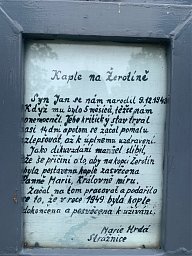 Kaple na Žerotíně
Syn Jan se nám narodil 9.12.194
Když mu bylo 5 měsíců, těžce nám
onemocněl. Jeho kritický stav trval
asi 14 dní a potom se začal pomalu
zlepšovat, až k úplnému uzdravení.
Jako díkuvzdání manžel slíbil,
že se přičiní o to, aby na kopci Žerotín
byla postavena kaple zasvěcena
Panně Marii, Královně míru.
Začal na tom pracovat a podařilo
se to, že v roce 1949 byla kaple
dokončena a posvěcena k užívání.
Marie Hrdá
Strážnice